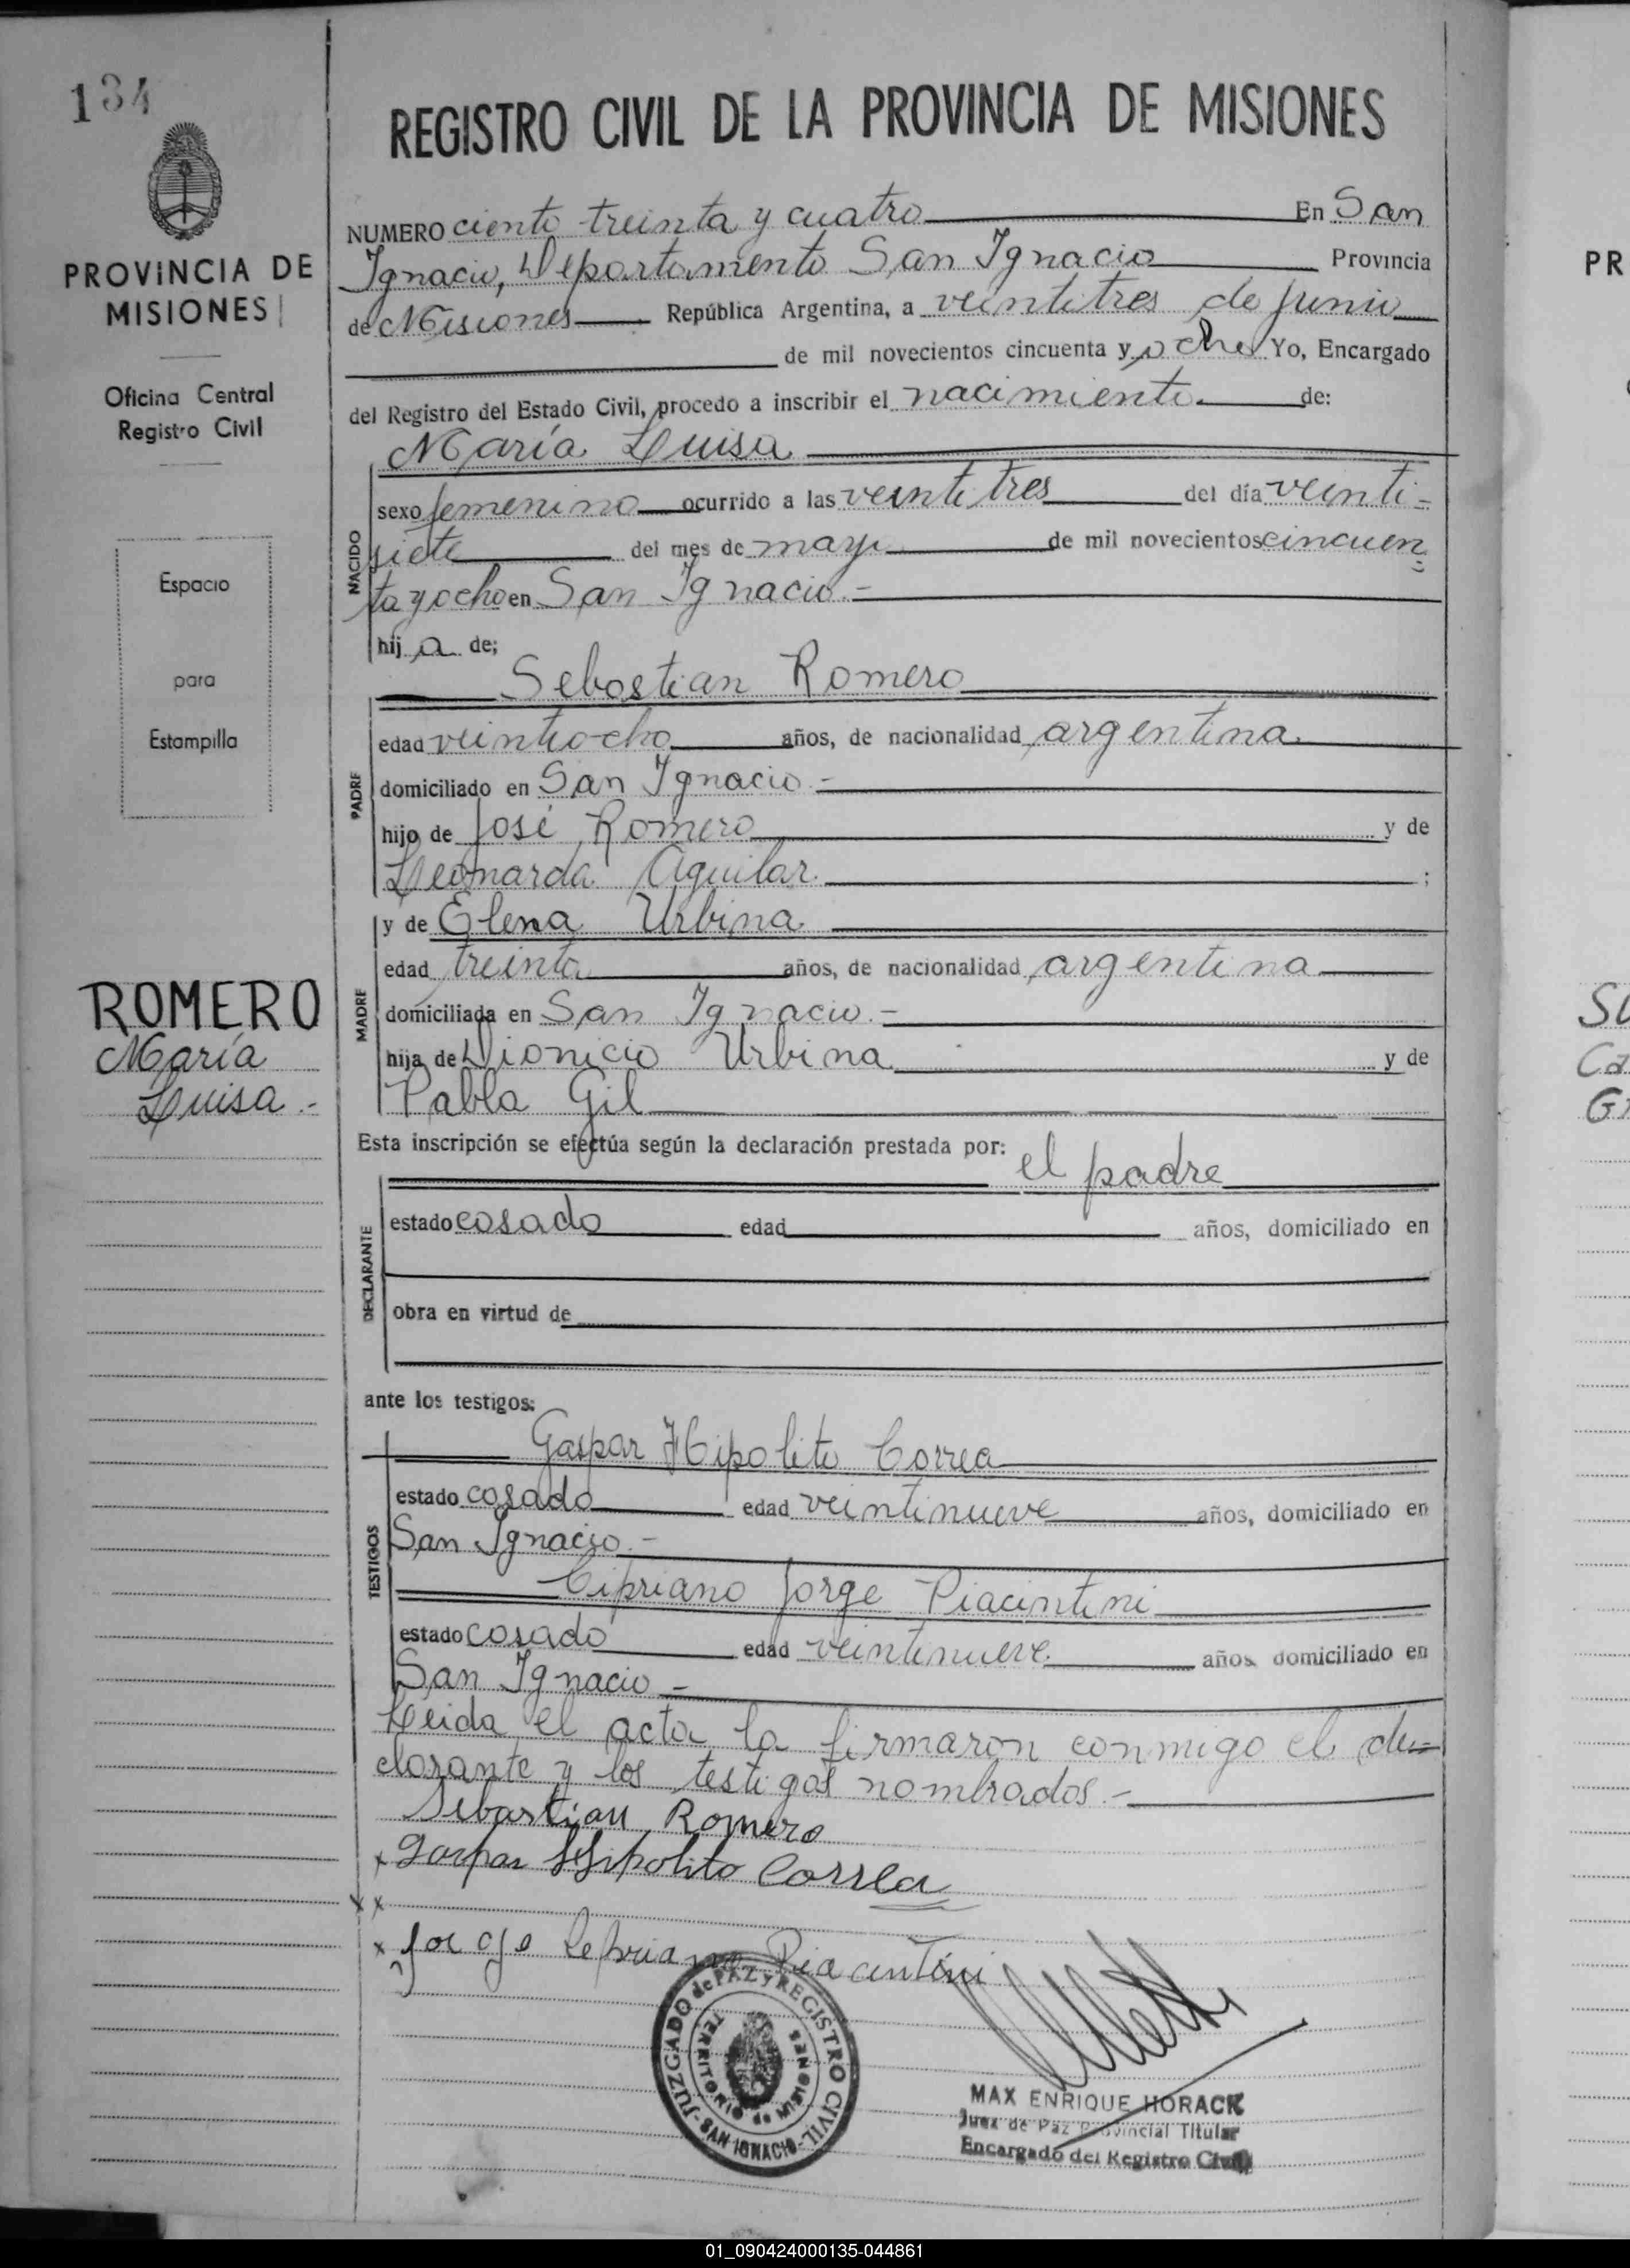 134
PROVINCIA DE
MISIONES
Oficina Central
Registro Civil
Espacio
para
Estampilla
ROMERO
María
Luisa.-
REGISTRO CIVIL DE LA PROVINCIA DE MISIONES
NUMERO ciento treinta y cuatro En San
Ignacio, Departamento San Ignacio Provincia
de Misiones República Argentina, a veintitres de junio
de mil novecientos cincuenta y ocho Yo, Encargado
del Registro del Estado Civil, procedo a inscribir el nacimiento de:
María Luisa
NACIDO
sexo femenino ocurrido a las veintitres del día veinti-
siete del mes de mayo de mil novecientos cincuen=
ta y ocho en San Ignacio.-
hij a de;
Sebastian Romero
PADRE
edad veintiocho años, de nacionalidad argentina
domiciliado en San Ignacio.-
hijo de José Romero y de
Leonarda Aguilar ;
y de Elena Urbina
MADRE
edad treinta años, de nacionalidad argentina
domiciliada en San Ignacio.-
hija de Dionicio Urbina y de
Pabla Gil
Esta inscripción se efectúa según la declaración prestada por:
el padre
DECLARANTE
estado casado edad años, domiciliado en
obra en virtud de
ante los testigos:
Gaspar Hipolito Correa
TESTIGOS
estado casado edad veintinueve años, domiciliado en
San Ignacio.-
Cipriano Jorge Piacintini
estado casado edad veintinueve años domiciliado en
San Ignacio -
Leida el acta la firmaron conmigo el de=
clarante y los testigos nombrados.-
Sebastian Romero
x Gaspar Hipolito Correa
x x
x Jorge Sepriano Piacintini
JUZGADO de PAZ y REGISTRO CIVIL - SAN IGNACIO -
TERRITORIO de MISIONES
MAX ENRIQUE HORACK
Juez de Paz Provincial Titular
Encargado del Registro Civil
PR
SU
Ca
G
01_090424000135-044861